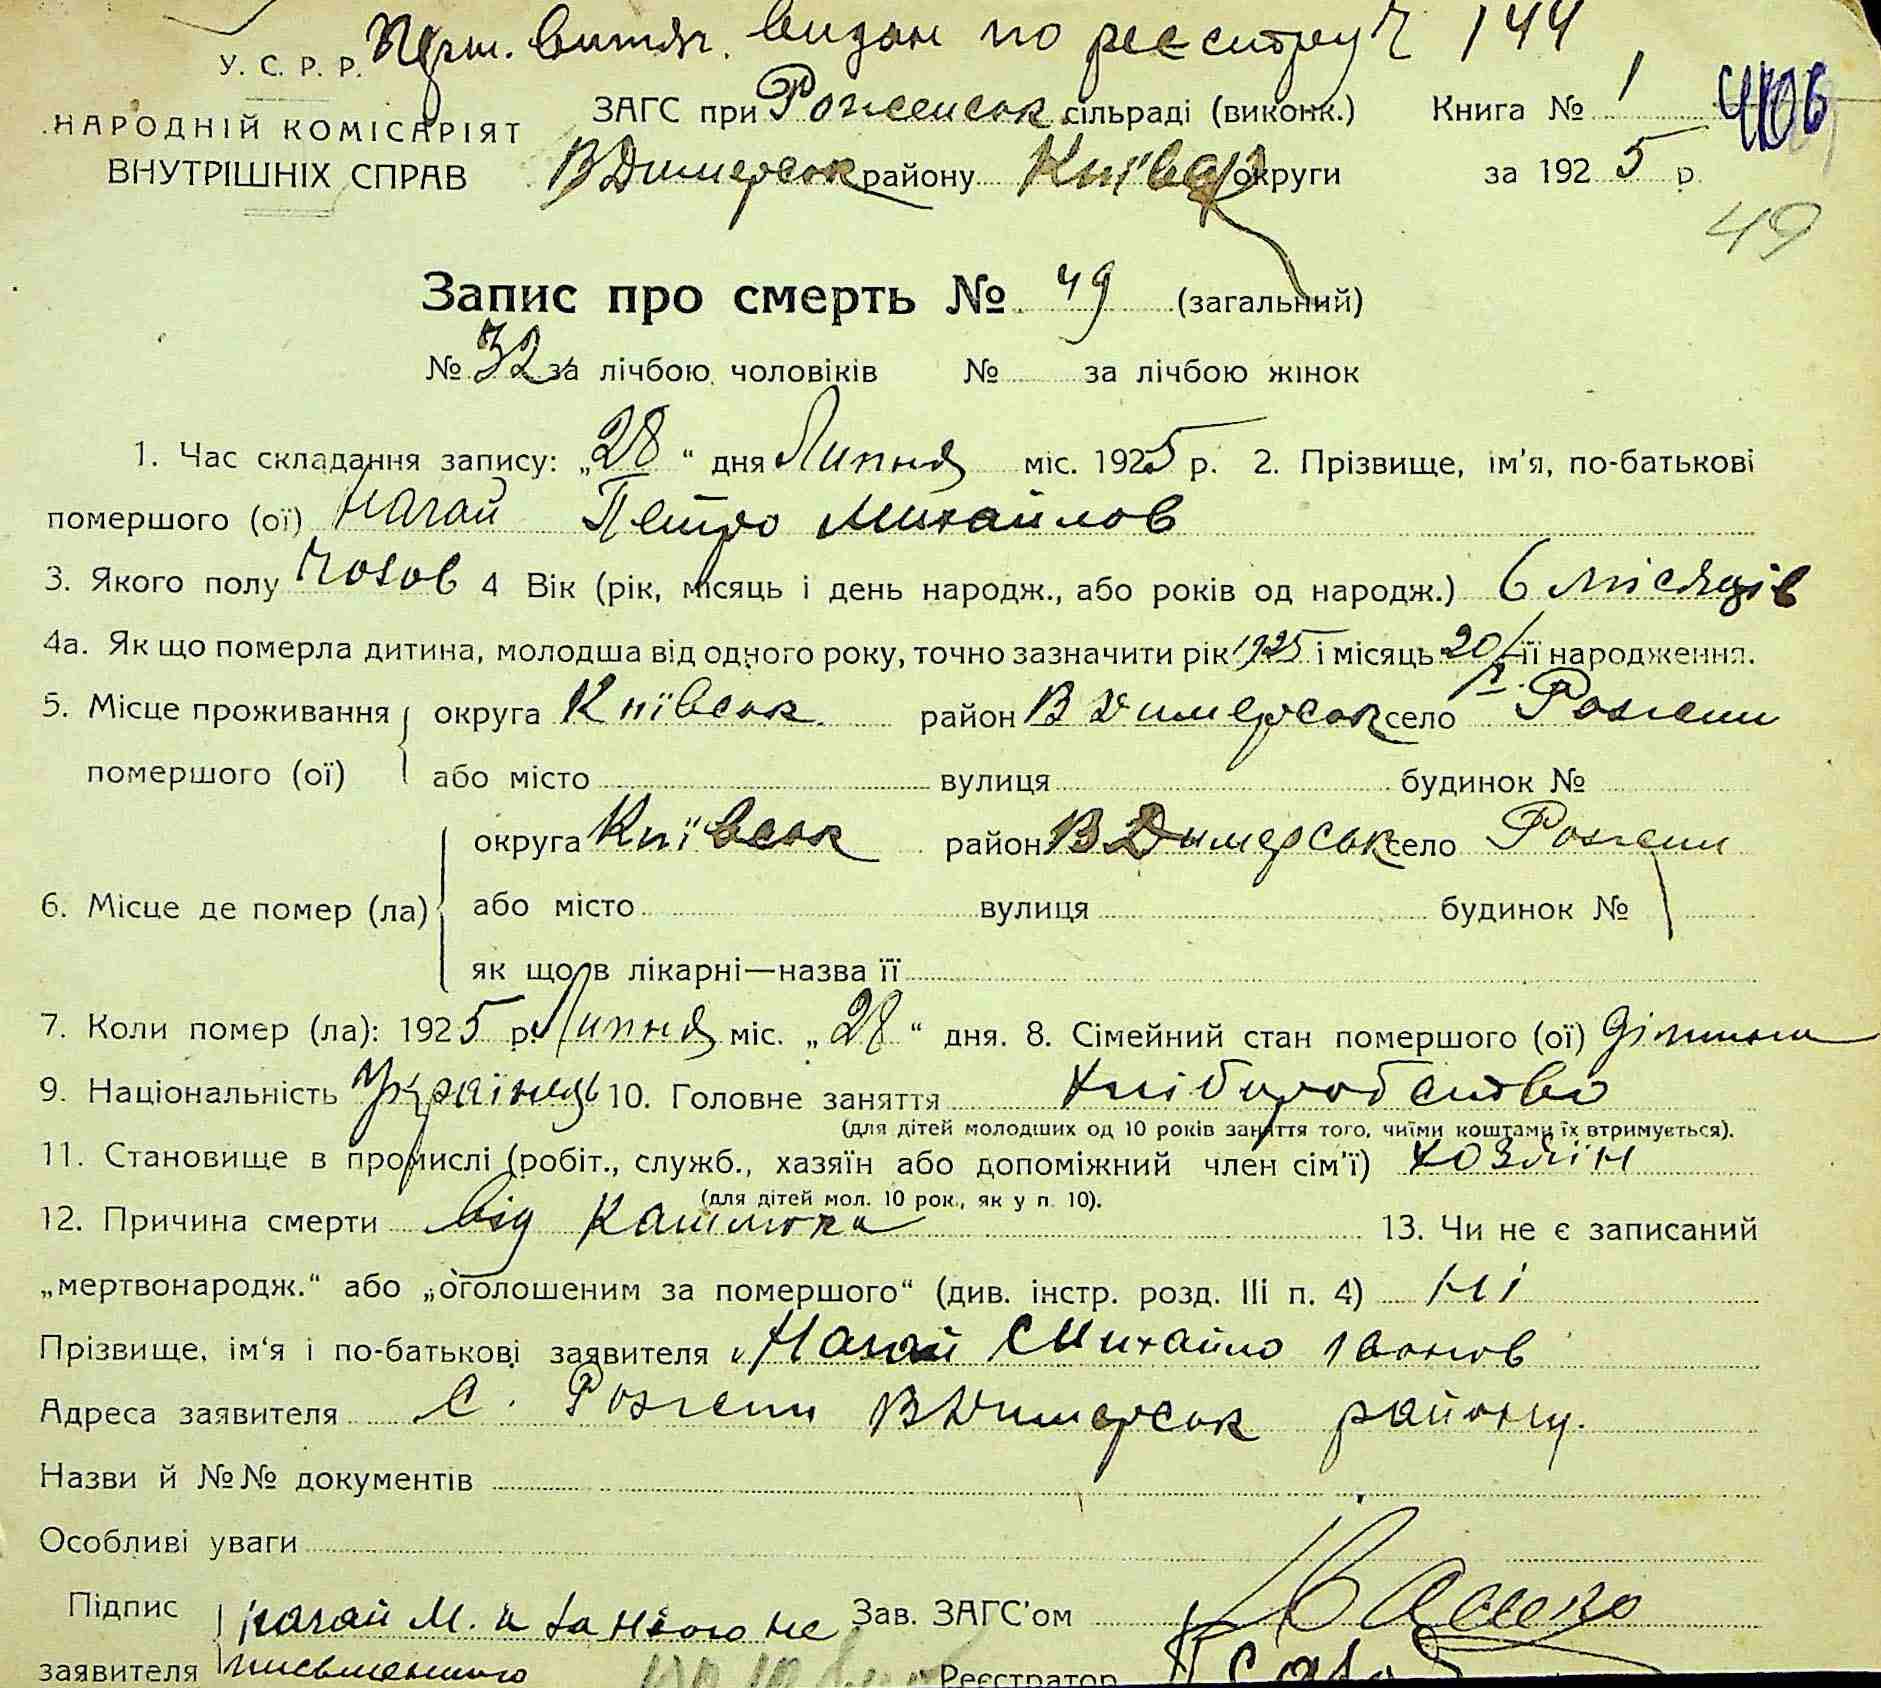 витяг. видан по реєстру Ч 144
У. С. Р. Р.
ЗАГС при Роженськ сільраді (виконк.) Книга № 1
НАРОДНІЙ КОМІСАРІЯТ
ВНУТРІШНІХ СПРАВ
ВДимерськ району Київськ округи за 1925 р.
49
Запис про смерть № 49 (загальний)
№ 32 за лічбою чоловіків № за лічбою жінок
1. Час складання запису: „28“ дня Липня міс. 1925 р. 2. Прізвище, ім'я, по-батькові
помершого (ої) Нагай Петро Михайлов
3. Якого полу Чолов 4 Вік (рік, місяць і день народж., або років од народж.) 6 місяців
4а. Як що померла дитина, молодша від одного року, точно зазначити рік 1925 і місяць 20/I її народження.
5. Місце проживання округа Київськ район ВДимерськ село Рожени
помершого (ої) або місто вулиця будинок №
округа Київськ район ВДимерськ село Рожени
6. Місце де помер (ла) або місто вулиця будинок №
як що в лікарні—назва її
7. Коли помер (ла): 1925 р. Липня міс. „28“ дня. 8. Сімейний стан помершого (ої) дітина
9. Національність Українець 10. Головне заняття хлібиробство
(для дітей молодших од 10 років заняття того, чиїми коштами їх втримується).
11. Становище в промислі (робіт., служб., хазяїн або допоміжний член сім'ї) хозяїн
(для дітей мол. 10 рок., як у п. 10).
12. Причина смерти від Кашлюка 13. Чи не є записаний
„мертвонародж.“ або „оголошеним за помершого“ (див. інстр. розд. III п. 4) ні
Прізвище, ім'я і по-батькові заявителя Нагай Михайло Іванов
Адреса заявителя С. Рожени ВДимерськ району.
Назви й №№ документів
Особливі уваги
Підпис нагай М. а за нього не Зав. ЗАГС'ом
заявителя письменного Реєстратор